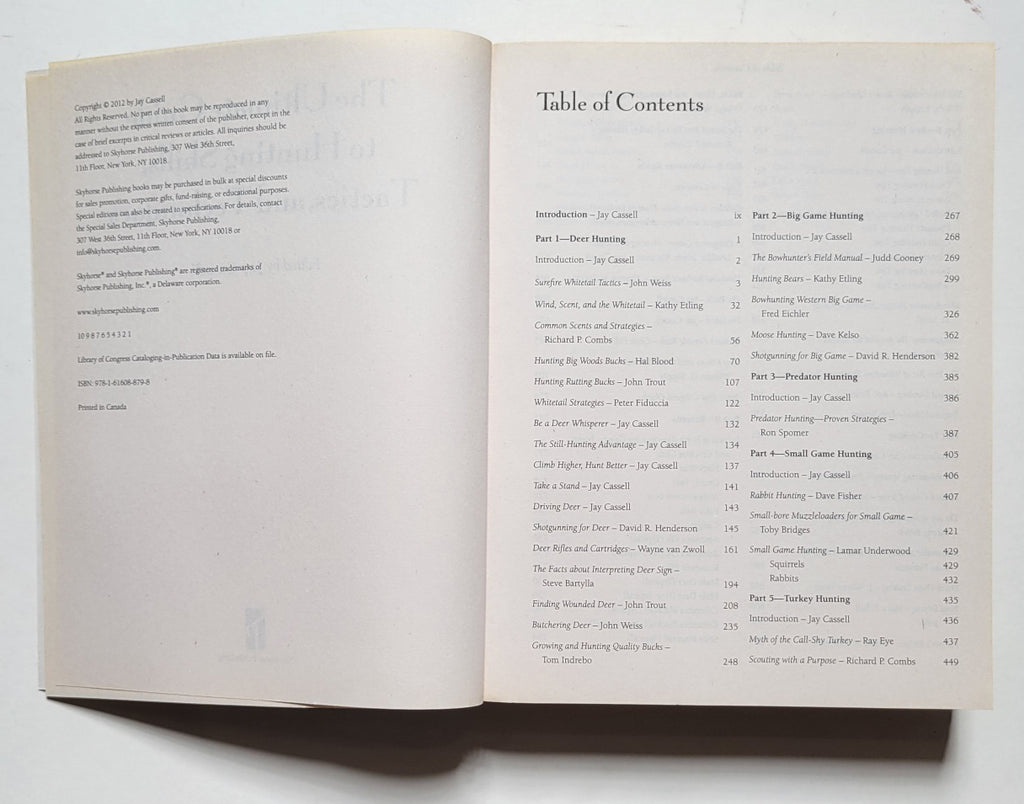 Copyright © 2012 by Jay Cassell
All Rights Reserved. No part of this book may be reproduced in any
manner without the express written consent of the publisher, except in the
case of brief excerpts in critical reviews or articles. All inquiries should be
addressed to Skyhorse Publishing, 307 West 36th Street,
11th Floor, New York, NY 10018.
Skyhorse Publishing books may be purchased in bulk at special discounts
for sales promotion, corporate gifts, fund-raising, or educational purposes.
Special editions can also be created to specifications. For details, contact
the Special Sales Department, Skyhorse Publishing,
307 West 36th Street, 11th Floor, New York, NY 10018 or
info@skyhorsepublishing.com.
Skyhorse® and Skyhorse Publishing® are registered trademarks of
Skyhorse Publishing, Inc.®, a Delaware corporation.
www.skyhorsepublishing.com
10 9 8 7 6 5 4 3 2 1
Library of Congress Cataloging-in-Publication Data is available on file.
ISBN: 978-1-61608-879-8
Printed in Canada
Table of Contents
Introduction – Jay Cassell ix
Part 1—Deer Hunting 1
Introduction – Jay Cassell 2
Surefire Whitetail Tactics – John Weiss 3
Wind, Scent, and the Whitetail – Kathy Etling 32
Common Scents and Strategies –
Richard P. Combs 56
Hunting Big Woods Bucks – Hal Blood 70
Hunting Rutting Bucks – John Trout 107
Whitetail Strategies – Peter Fiduccia 122
Be a Deer Whisperer – Jay Cassell 132
The Still-Hunting Advantage – Jay Cassell 134
Climb Higher, Hunt Better – Jay Cassell 137
Take a Stand – Jay Cassell 141
Driving Deer – Jay Cassell 143
Shotgunning for Deer – David R. Henderson 145
Deer Rifles and Cartridges – Wayne van Zwoll 161
The Facts about Interpreting Deer Sign –
Steve Bartylla 194
Finding Wounded Deer – John Trout 208
Butchering Deer – John Weiss 235
Growing and Hunting Quality Bucks –
Tom Indrebo 248
Part 2—Big Game Hunting 267
Introduction – Jay Cassell 268
The Bowhunter's Field Manual – Judd Cooney 269
Hunting Bears – Kathy Etling 299
Bowhunting Western Big Game –
Fred Eichler 326
Moose Hunting – Dave Kelso 362
Shotgunning for Big Game – David R. Henderson 382
Part 3—Predator Hunting 385
Introduction – Jay Cassell 386
Predator Hunting—Proven Strategies –
Ron Spomer 387
Part 4—Small Game Hunting 405
Introduction – Jay Cassell 406
Rabbit Hunting – Dave Fisher 407
Small-bore Muzzleloaders for Small Game –
Toby Bridges 421
Small Game Hunting – Lamar Underwood 429
Squirrels 429
Rabbits 432
Part 5—Turkey Hunting 435
Introduction – Jay Cassell 436
Myth of the Call-Shy Turkey – Ray Eye 437
Scouting with a Purpose – Richard P. Combs 449